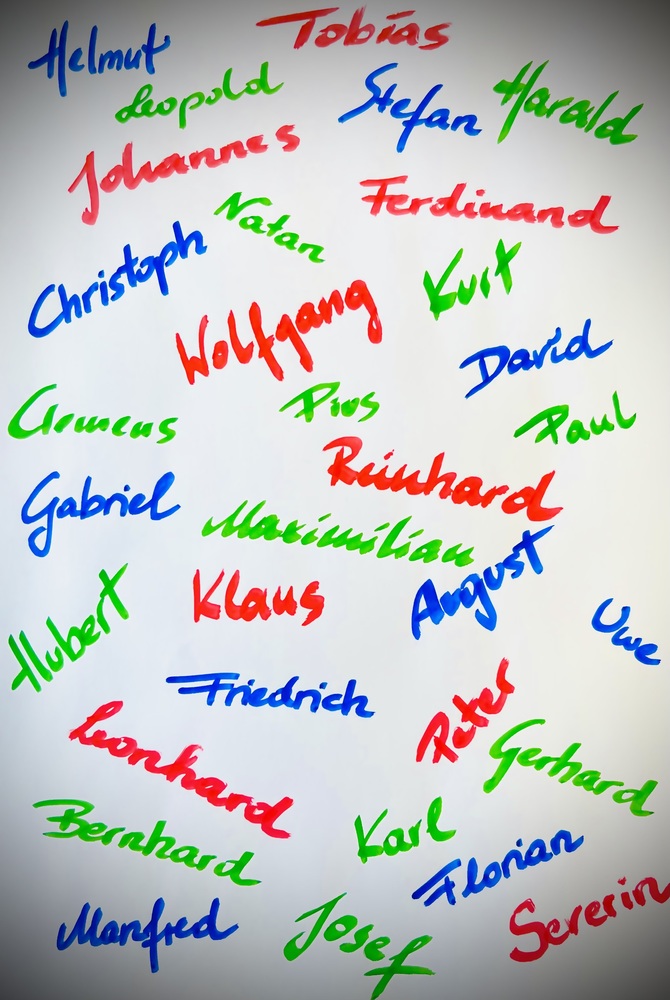 Tobias
Helmut
Leopold
Stefan
Harald
Johannes
Ferdinand
Natan
Christoph
Kurt
Wolfgang
David
Clemens
Pius
Paul
Reinhard
Gabriel
Maximilian
August
Klaus
Hubert
Uwe
Friedrich
Peter
Leonhard
Gerhard
Bernhard
Karl
Florian
Severin
Manfred
Josef